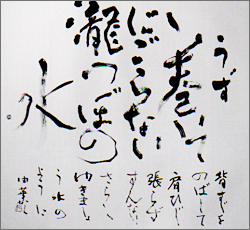 うず
巻いて
にごらない
瀧つぼの
水
背すじを
のばして
肩ひじ
張らず
すんなり
さらさら
ゆきましょ
う水の
ように